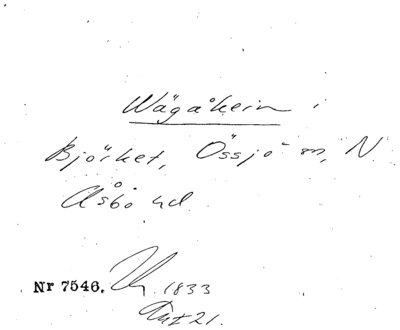 Wägåkern i
Björket, Össjö sn, N.
Åsbo hd
Nr 7546. 1833
Akt 21.